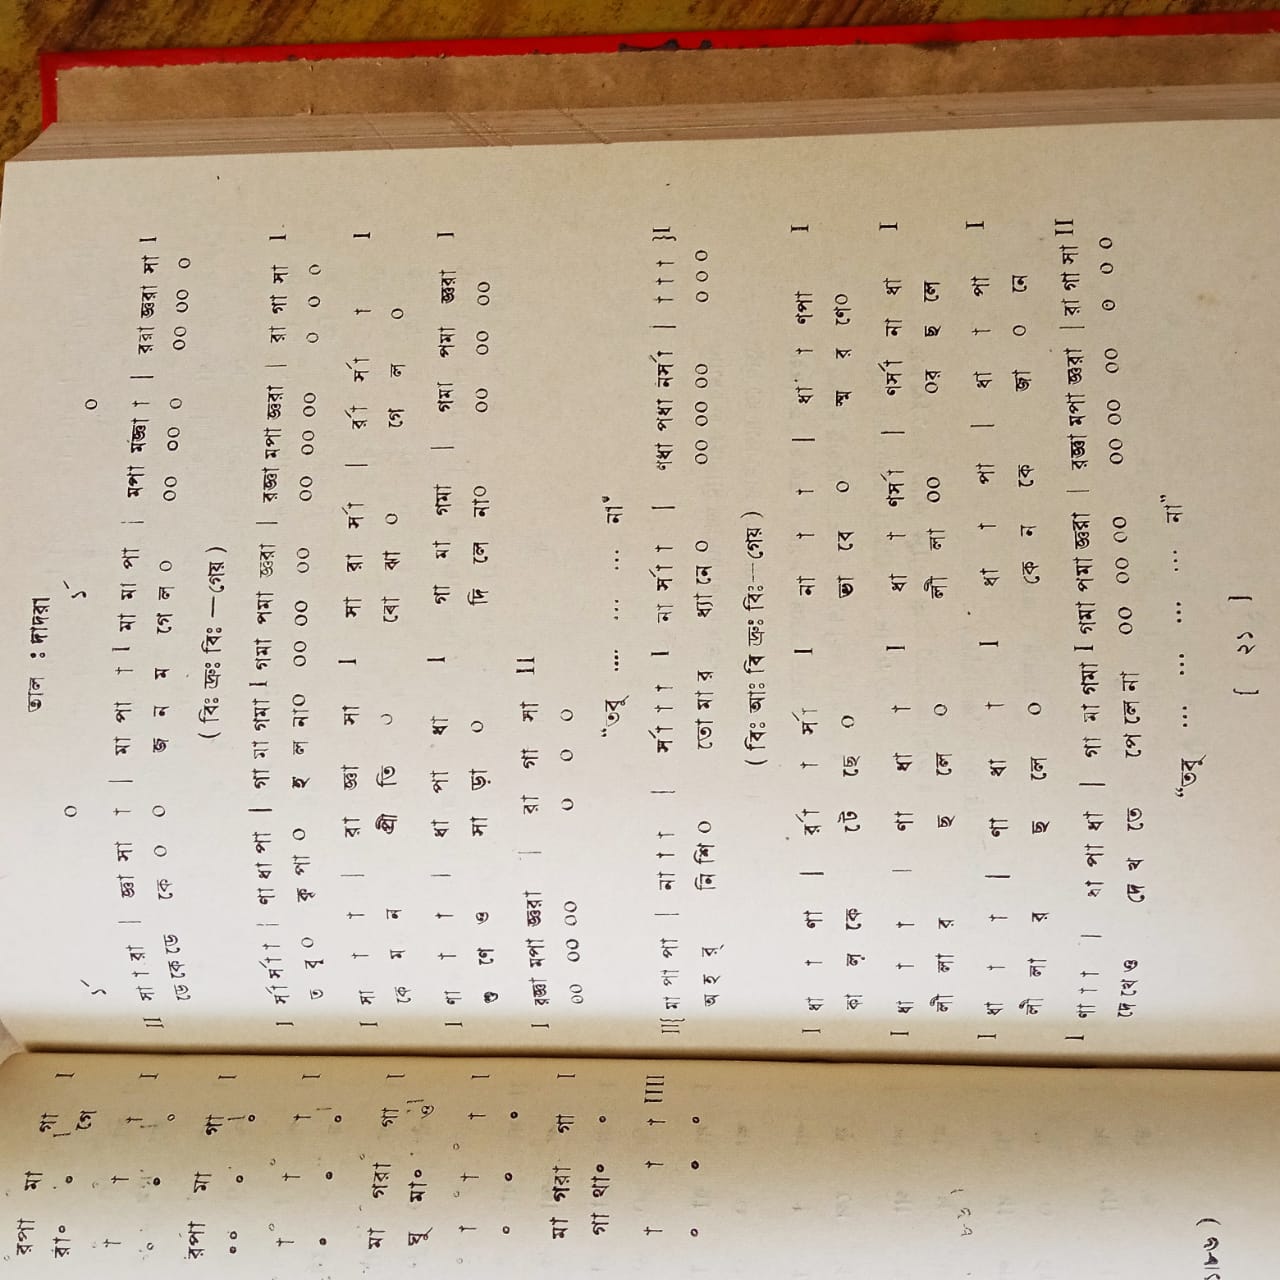 রপা মা গা I
রা॰ ॰ গে
† † † I
॰ ॰ ॰
রপা মা গা I
॰॰ ॰ ॰
† † † I
॰ ॰ ॰
মা গরা গা I
ঘু মা॰ ও
† † † I
॰ ॰ ॰
মা গরা গা I
গা থা॰ ॰
† † † IIII
॰ ॰ ॰
তাল : দাদরা
১´ ০ ১´ ০
II সা † রা | জ্ঞা সা † | মা পা † I মা মা পা | মপা মজ্ঞা † | ররা জ্ঞরা সা I
ডে কে ডে কে ০ ০ জ ন ম গে ল ০ ০০ ০০ ০ ০০ ০০ ০
( বিঃ দ্রুঃ বিঃ—গেয় )
I র্সা র্সা † | ণা ধা পা | গা মা গমা I গমা পমা জ্ঞরা | রজ্ঞা মপা জ্ঞরা | রা গা সা I
ত বু ০ কৃ পা ০ হ ল না০ ০০ ০০ ০০ ০০ ০০ ০০ ০ ০ ০
I সা † † | রা জ্ঞা সা I সা রা র্সা | র্রা র্সা † I
কে ম ন প্রী তি ০ বো ঝা ০ গে ল ০
I ণা † † | ধা পা ধা I গা মা গমা | গমা পমা জ্ঞরা I
শু ণে ও সা ড়া ০ দি লে না০ ০০ ০০ ০০
I রজ্ঞা মপা জ্ঞরা | রা গা সা II
০০ ০০ ০০ ০ ০ ০
“তবু .... ... ... ... না”
II{ মা পা পা | না † † | র্সা † † I না র্সা † | ণধা পধা নর্সা | † † † }I
অ হ র্ নি শি ০ তো মা র ধ্যা নে ০ ০০ ০০ ০০ ০ ০ ০
( বিঃ আঃ বি দ্রুঃ বিঃ—গেয় )
I ধা † ণা | র্রা † র্সা I না † † | ধা † ণপা I
কা ল্ কে টে ছে ০ ভা বে ০ স্ম র ণে০
I ধা † † | ণা ধা † I ধা † ণর্সা | ণর্সা না ধা I
লী লা র ছ লে ০ লী লা ০০ ০র ছ লে
I ধা † † | ণা ধা † I ধা † পা | ধা † পা I
লী লা র ছ লে ০ কে ন কে জা ০ নে
I ণা † † | ধা পা ধা | গা মা গমা I গমা পমা জ্ঞরা | রজ্ঞা মপা জ্ঞরা | রা গা সা II
দে খে ও দে খ তে পে লে না ০০ ০০ ০০ ০০ ০০ ০০ ০ ০ ০
“তবু ... ... ... ... না”
[ ২১ ]